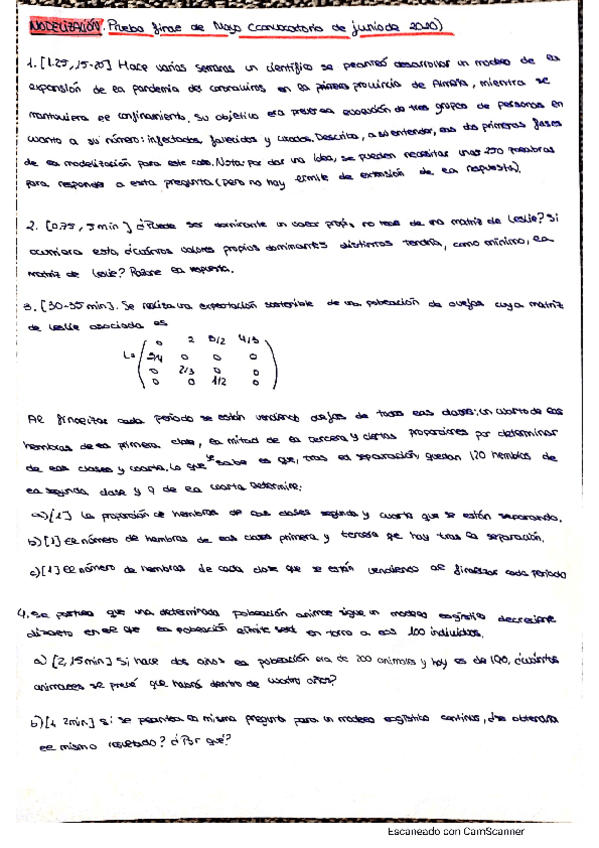 MODELIZACIÓN. Prueba final de Mayo (convocatoria de junio de 2020)
1. [1.25, 15-25] Hace varias semanas un científico se planteó desarrollar un modelo de la
expansión de la pandemia del coronavirus en la primera provincia de Almería, mientras se
mantuviera el confinamiento. Su objetivo era prever la evolución de tres grupos de personas en
cuanto a su número: infectados, fallecidos y curados. Describa, a su entender, las dos primeras fases
de la modelización para este caso. Nota: por dar una idea, se pueden necesitar unas 250 palabras
para responder a esta pregunta (pero no hay límite de extensión de la respuesta).
2. [0.75, 5 min] ¿Puede ser dominante un valor propio no real de una matriz de Leslie? Si
ocurriera esto, ¿cuántos valores propios dominantes distintos tendría, como mínimo, la
matriz de Leslie? Razone la respuesta.
3. [30-35 min]. Se realiza una explotación sostenible de una población de ovejas cuya matriz
de Leslie asociada es
0 2 5/2 4/3
L= 3/4 0 0 0
0 2/3 0 0
0 0 1/2 0
Al finalizar cada período se están vendiendo ovejas de todas las clases: un cuarto de las
hembras de la primera clase, la mitad de la tercera y ciertas proporciones por determinar
de las clases y cuarta. Lo que se sabe es que, tras la separación, quedan 120 hembras de
la segunda clase y 9 de la cuarta. Determine:
a) [1] La proporción de hembras de las clases segunda y cuarta que se están separando.
b) [1] El número de hembras de las clases primera y tercera que hay tras la separación.
c) [1] El número de hembras de cada clase que se están vendiendo al finalizar cada período
4. Se postula que una determinada población animal sigue un modelo logístico decreciente
discreto en el que la población límite será en torno a los 100 individuos.
a) [2, 15 min] Si hace dos años la población era de 200 animales y hoy es de 190, ¿cuántos
animales se prevé que habrá dentro de cuatro años?
b) [1, 2 min] Si se plantea la misma pregunta para un modelo logístico continuo, ¿se obtendría
el mismo resultado? ¿Por qué?
Escaneado con CamScanner